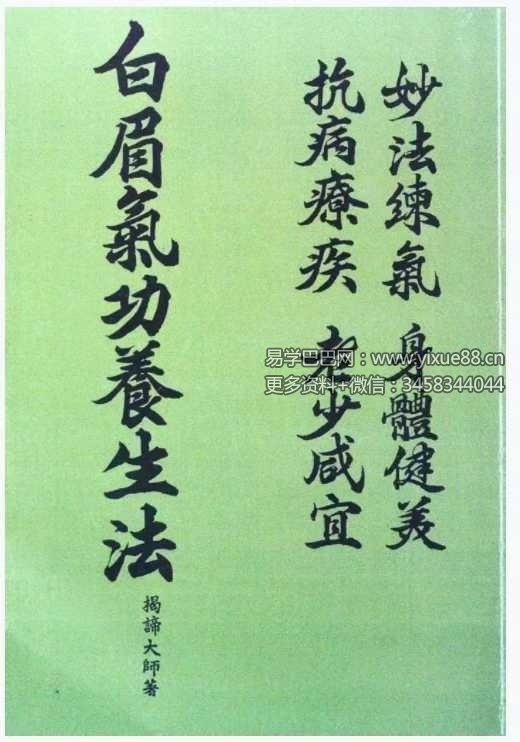 妙法練氣 身體健美
抗病療疾 老少咸宜
白眉氣功養生法
揭諦大師著
易学巴巴网:www.yixue88.cn
更多资料+微信:3458344044